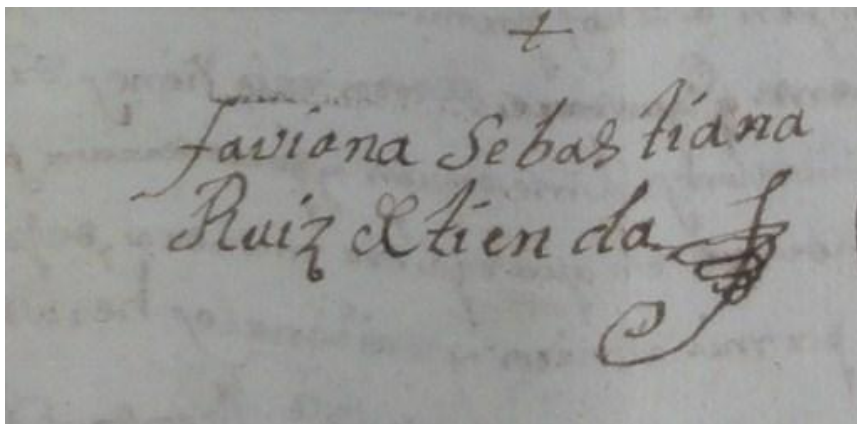 Faviana Sebastiana
Ruiz & tienda